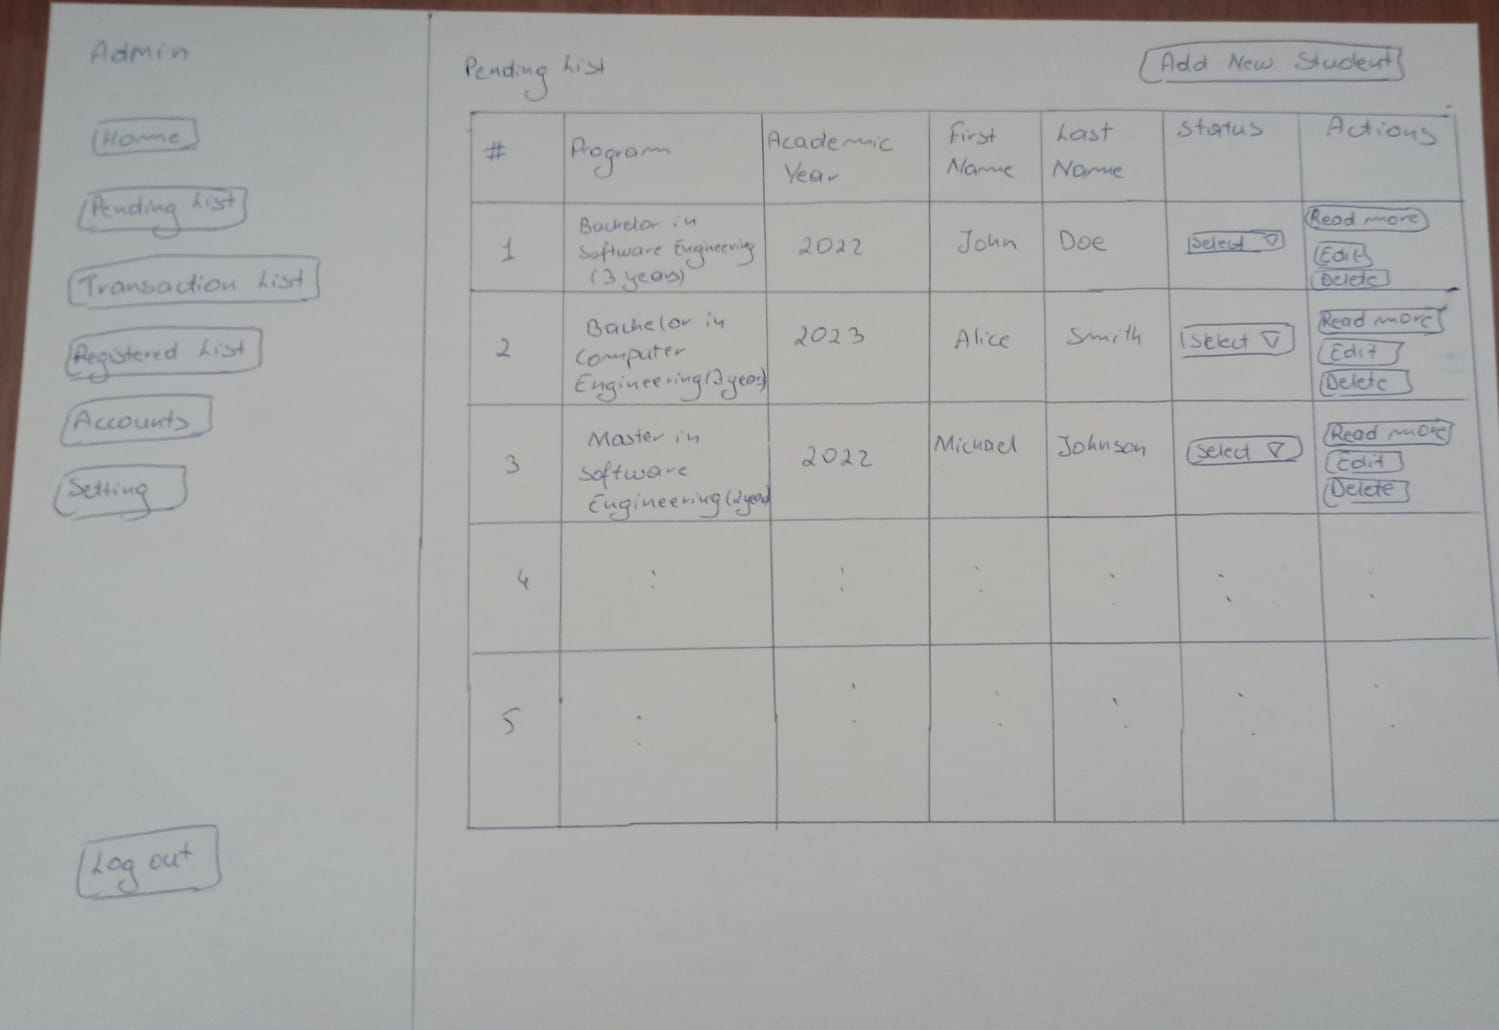 Admin
Home
Pending List
Transaction List
Registered List
Accounts
Setting
Log out
Pending List
Add New Student
#
Program
Academic
Year
First
Name
Last
Name
Status
Actions
1
Bachelor in
Software Engineering
(3 years)
2022
John
Doe
Select
Read more
Edit
Delete
2
Bachelor in
Computer
Engineering (3 years)
2023
Alice
Smith
Select
Read more
Edit
Delete
3
Master in
Software
Engineering (2 years)
2022
Michael
Johnson
Select
Read more
Edit
Delete
4
5